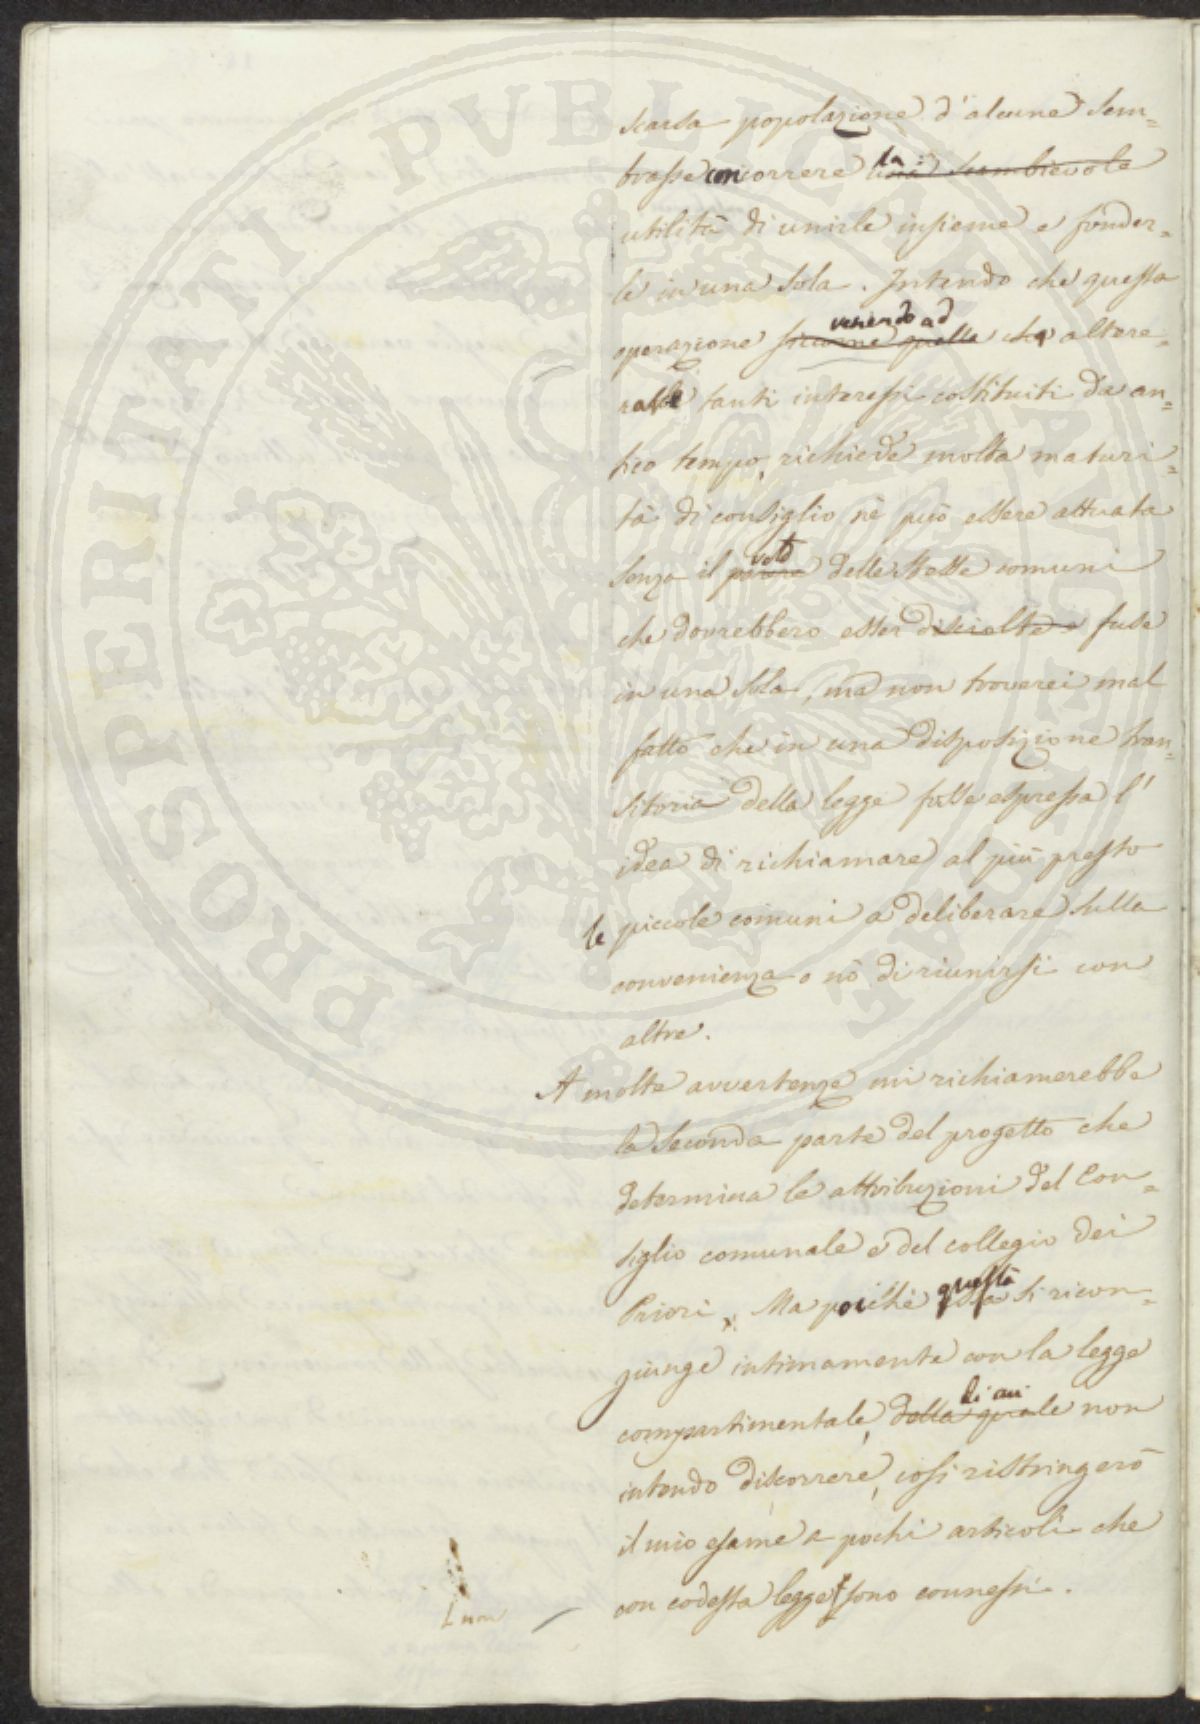 scarsa popolazione d'alcune sem=
brasse concorrere la scambievole
utilità di unirle insieme e fonder=
le in una sola. Intendo che questa
operazione siccome quella che venendo ad altere=
tanti interessi costituiti da an=
tico tempo, richiede molta maturi=
tà di consiglio nè può essere attuata
senza il parere voto delle stesse comuni
che dovrebbero esser disciolte e fuse
in una sola, ma non troverei mal
fatto che in una disposizione tran=
sitoria della legge fosse espressa l'
idea di richiamare al più presto
le piccole comuni a deliberare sulla
convenienza o nò di riunirsi con
altre.
A molte avvertenze mi richiamerebbe
la seconda parte del progetto che
determina le attribuzioni del Con=
siglio comunale e del collegio dei
Priori. Ma poiché questa si ricon=
giunge intimamente con la legge
compartimentale, della quale di cui non
intendo discorrere, così ristringerò
il mio esame a pochi articoli che
con codesta legge sono connessi.
PROSPERITATI PVBLICAE AVGENDAE